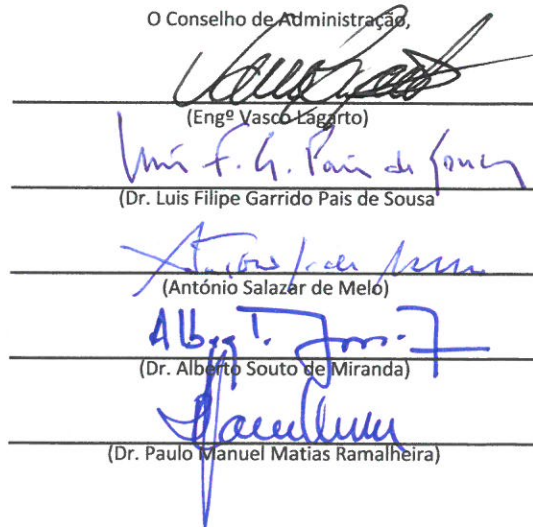 O Conselho de Administração,
(Engº Vasco Lagarto)
Luís F. G. Pais de Sousa
(Dr. Luis Filipe Garrido Pais de Sousa
(António Salazar de Melo)
(Dr. Alberto Souto de Miranda)
(Dr. Paulo Manuel Matias Ramalheira)